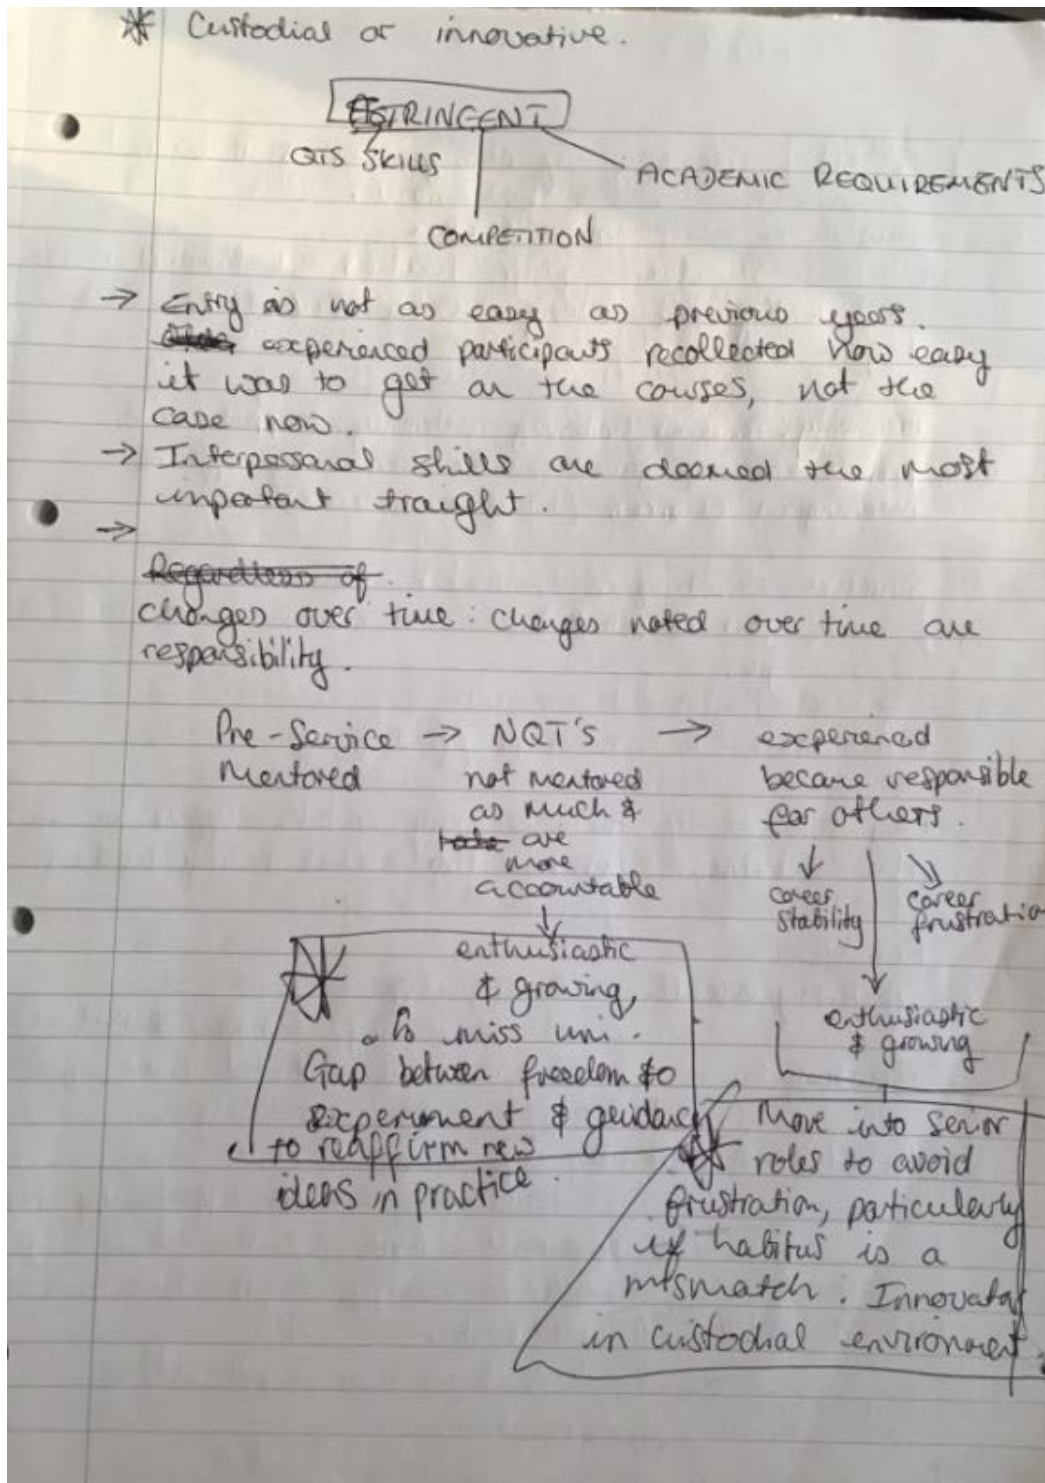 * Custodial or innovative.
STRINGENT
QTS SKILLS
ACADEMIC REQUIREMENTS
COMPETITION
→ Entry is not as easy as previous years.
experienced participants recollected how easy
it was to get on the courses, not the
case now.
→ Interpersonal skills are deemed the most
important traight.
→
Regardless of
changes over time: changes noted over time are
responsibility.
Pre-Service → NQT's → experienced
Mentored
not mentored
as much &
are
more
accountable
became responsible
for others.
career
stability
career
frustration
enthusiastic
& growing,
miss uni.
Gap between freedom to
experiment & guidance
to reaffirm new
ideas in practice.
enthusiastic
& growing
Move into senior
roles to avoid
frustration, particularly
if habitus is a
mismatch. Innovator
in custodial environment.